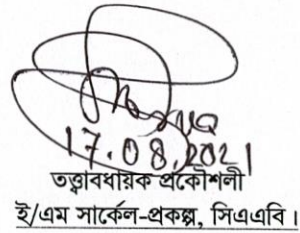 17.08.2021
তত্ত্বাবধায়ক প্রকৌশলী
ই/এম সার্কেল-প্রকল্প, সিএএবি।